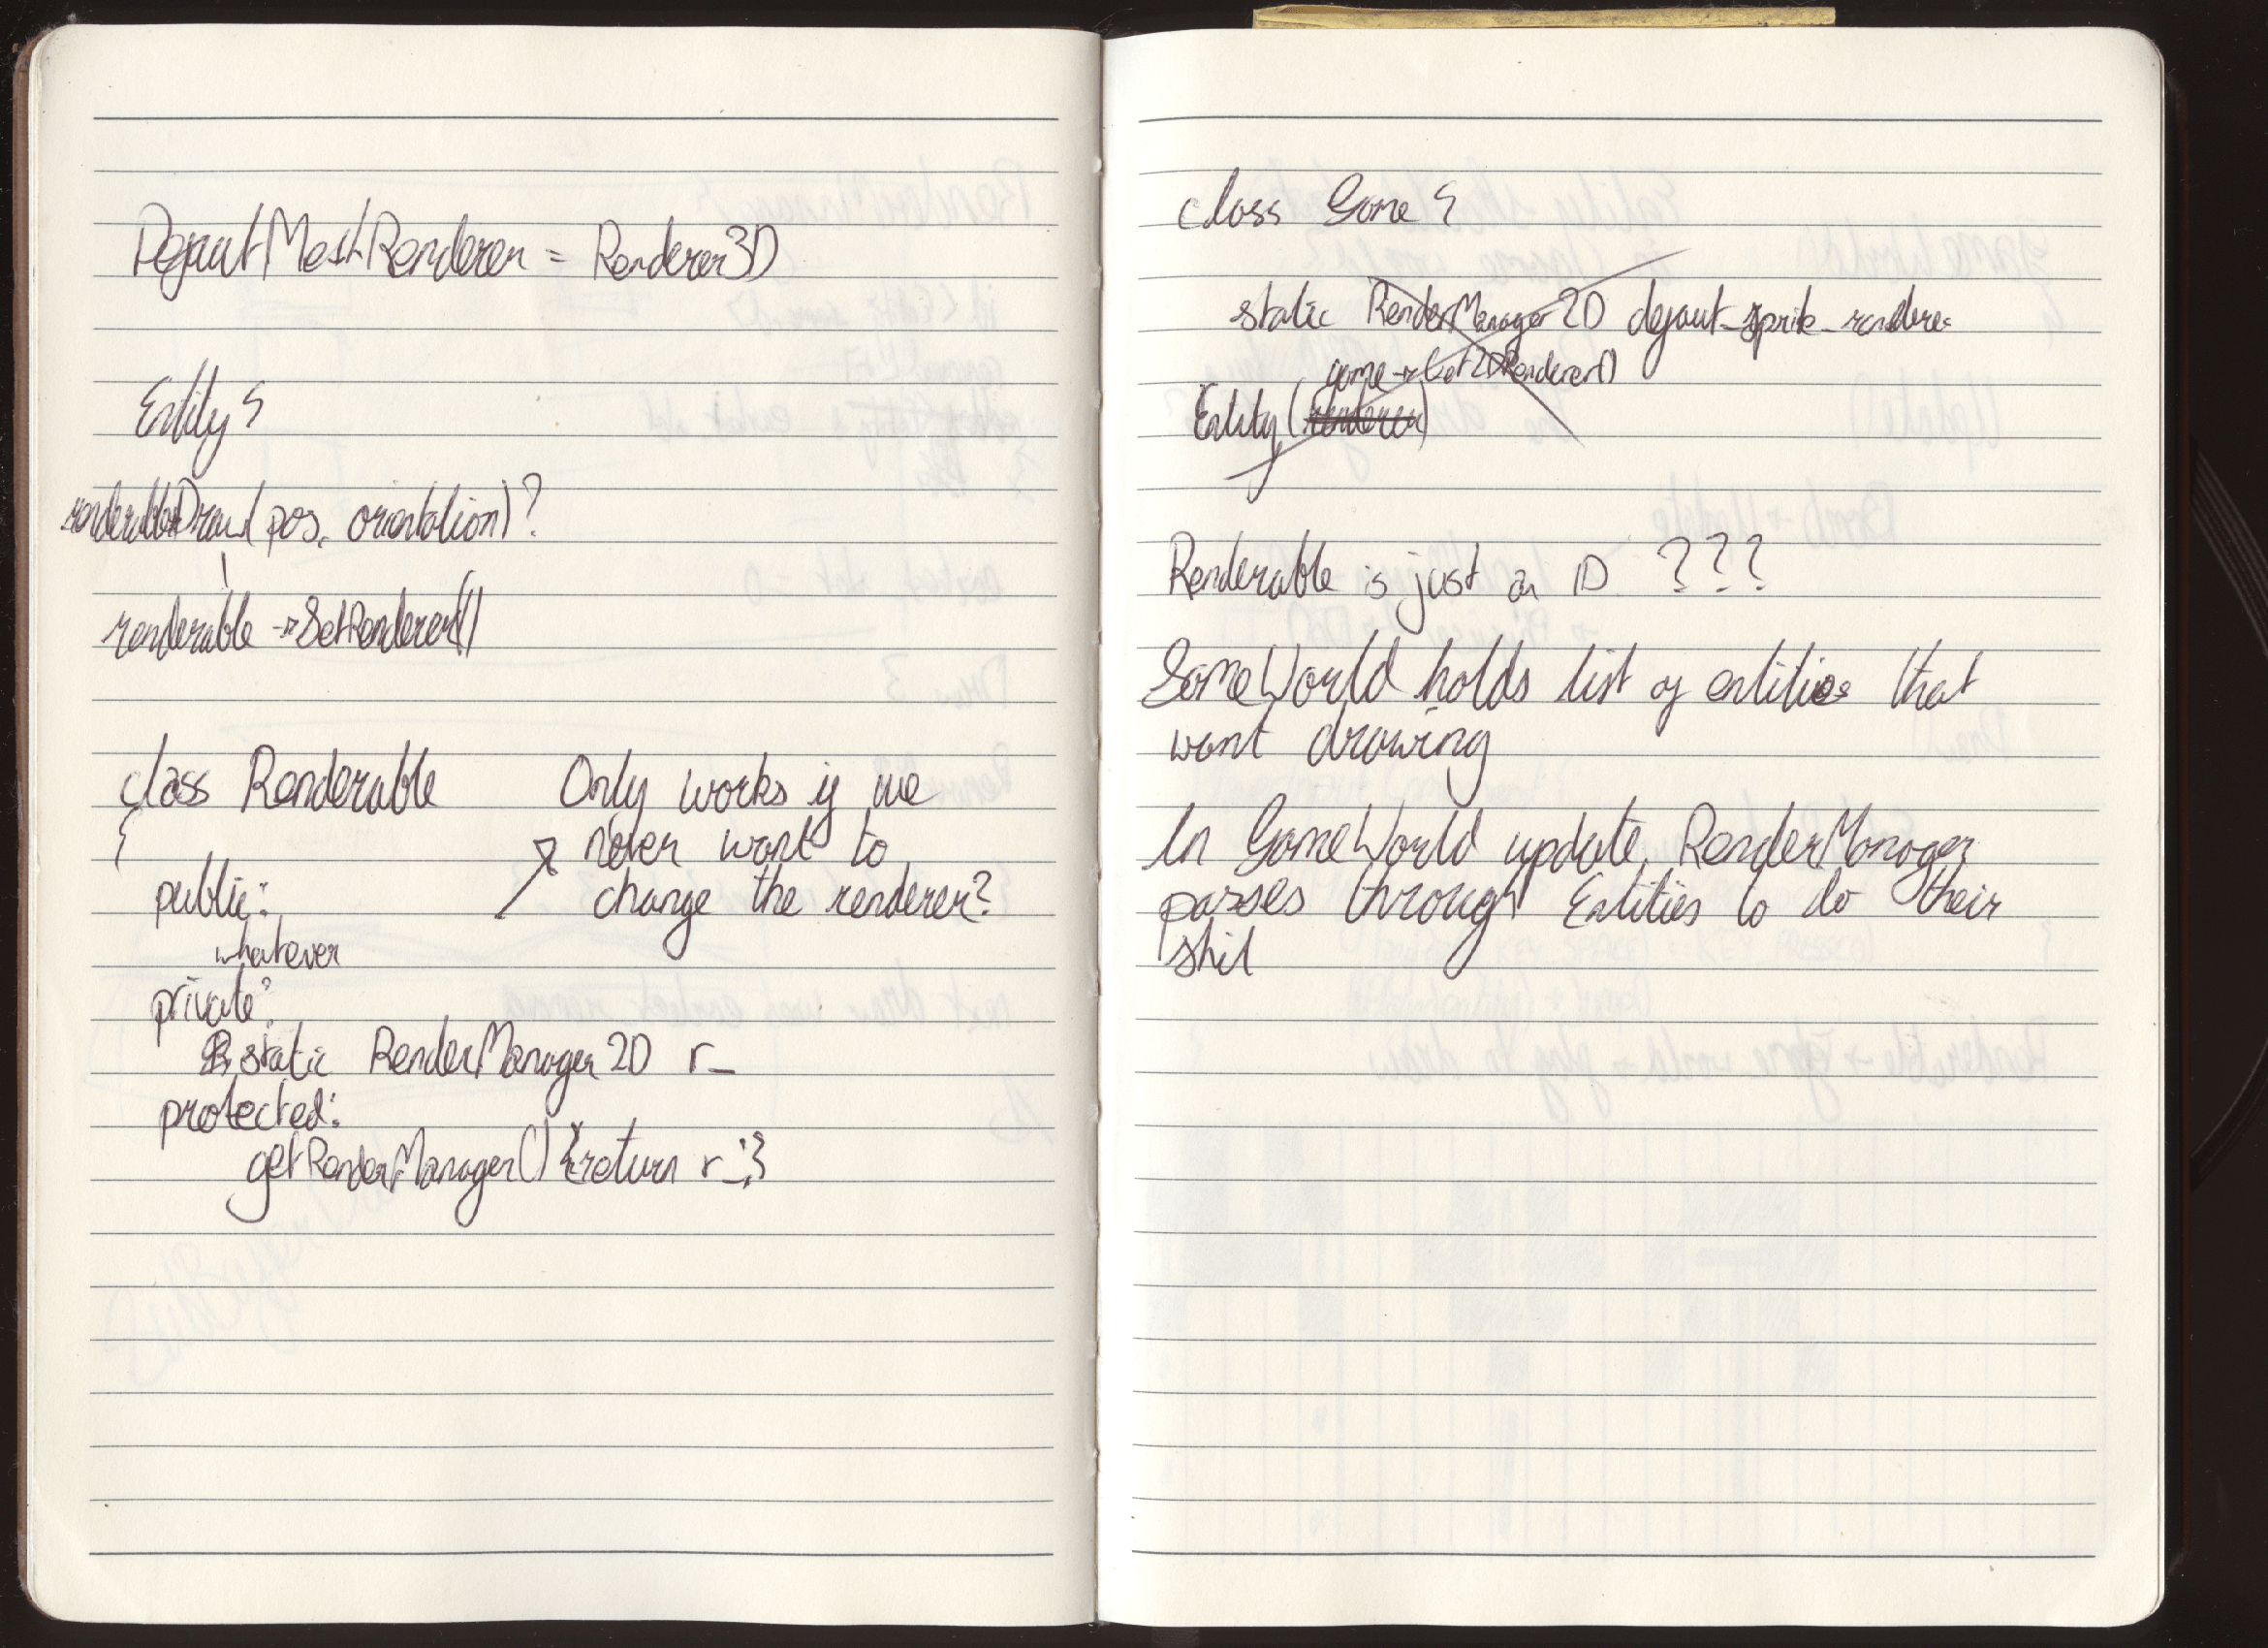 DefautMeshRenderer = Renderer3D
Entity {
renderable→Draw(pos, orientation)?
renderable → SetRenderer()
class Renderable
{
public:
whatever
private:
static RenderManager2D r_
protected:
getRenderManager() {return r_;}
Only works if we
never want to
change the renderer?
class Game {
static RenderManager2D defaut_sprite_renderer
game → Get2DRenderer()
Entity (renderer)
Renderable is just an ID ???
GameWorld holds list of entities that
want drawing
In GameWorld update, RenderManager
passes through Entities to do their
shit